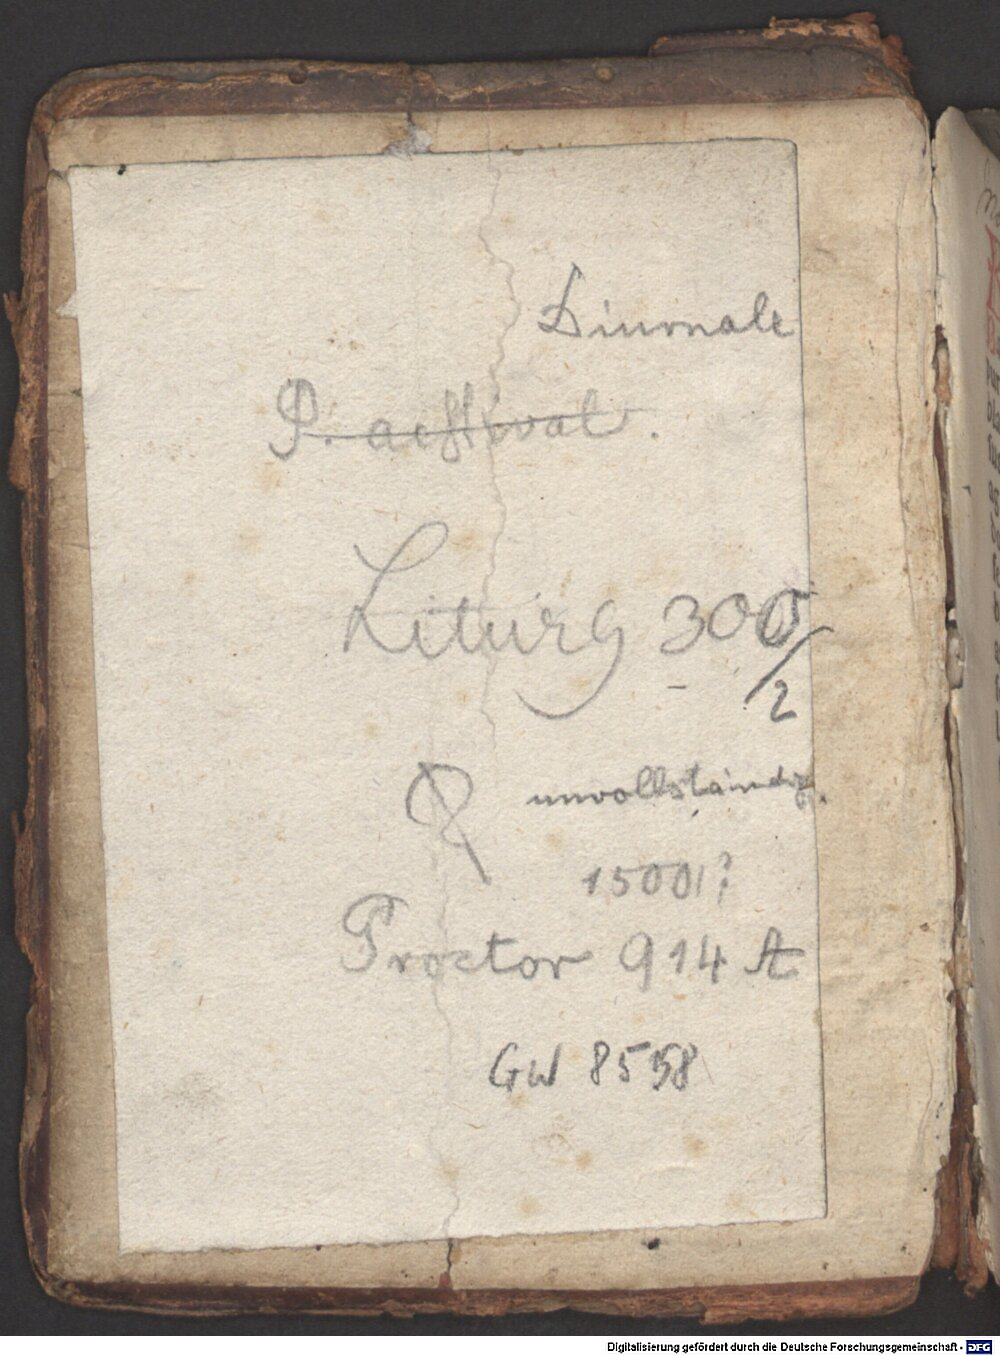 Diurnale
P. aestival.
Liturg 300
/2
unvollständig.
1500?
Proctor 914 A
GW 8558
Digitalisierung gefördert durch die Deutsche Forschungsgemeinschaft - DFG